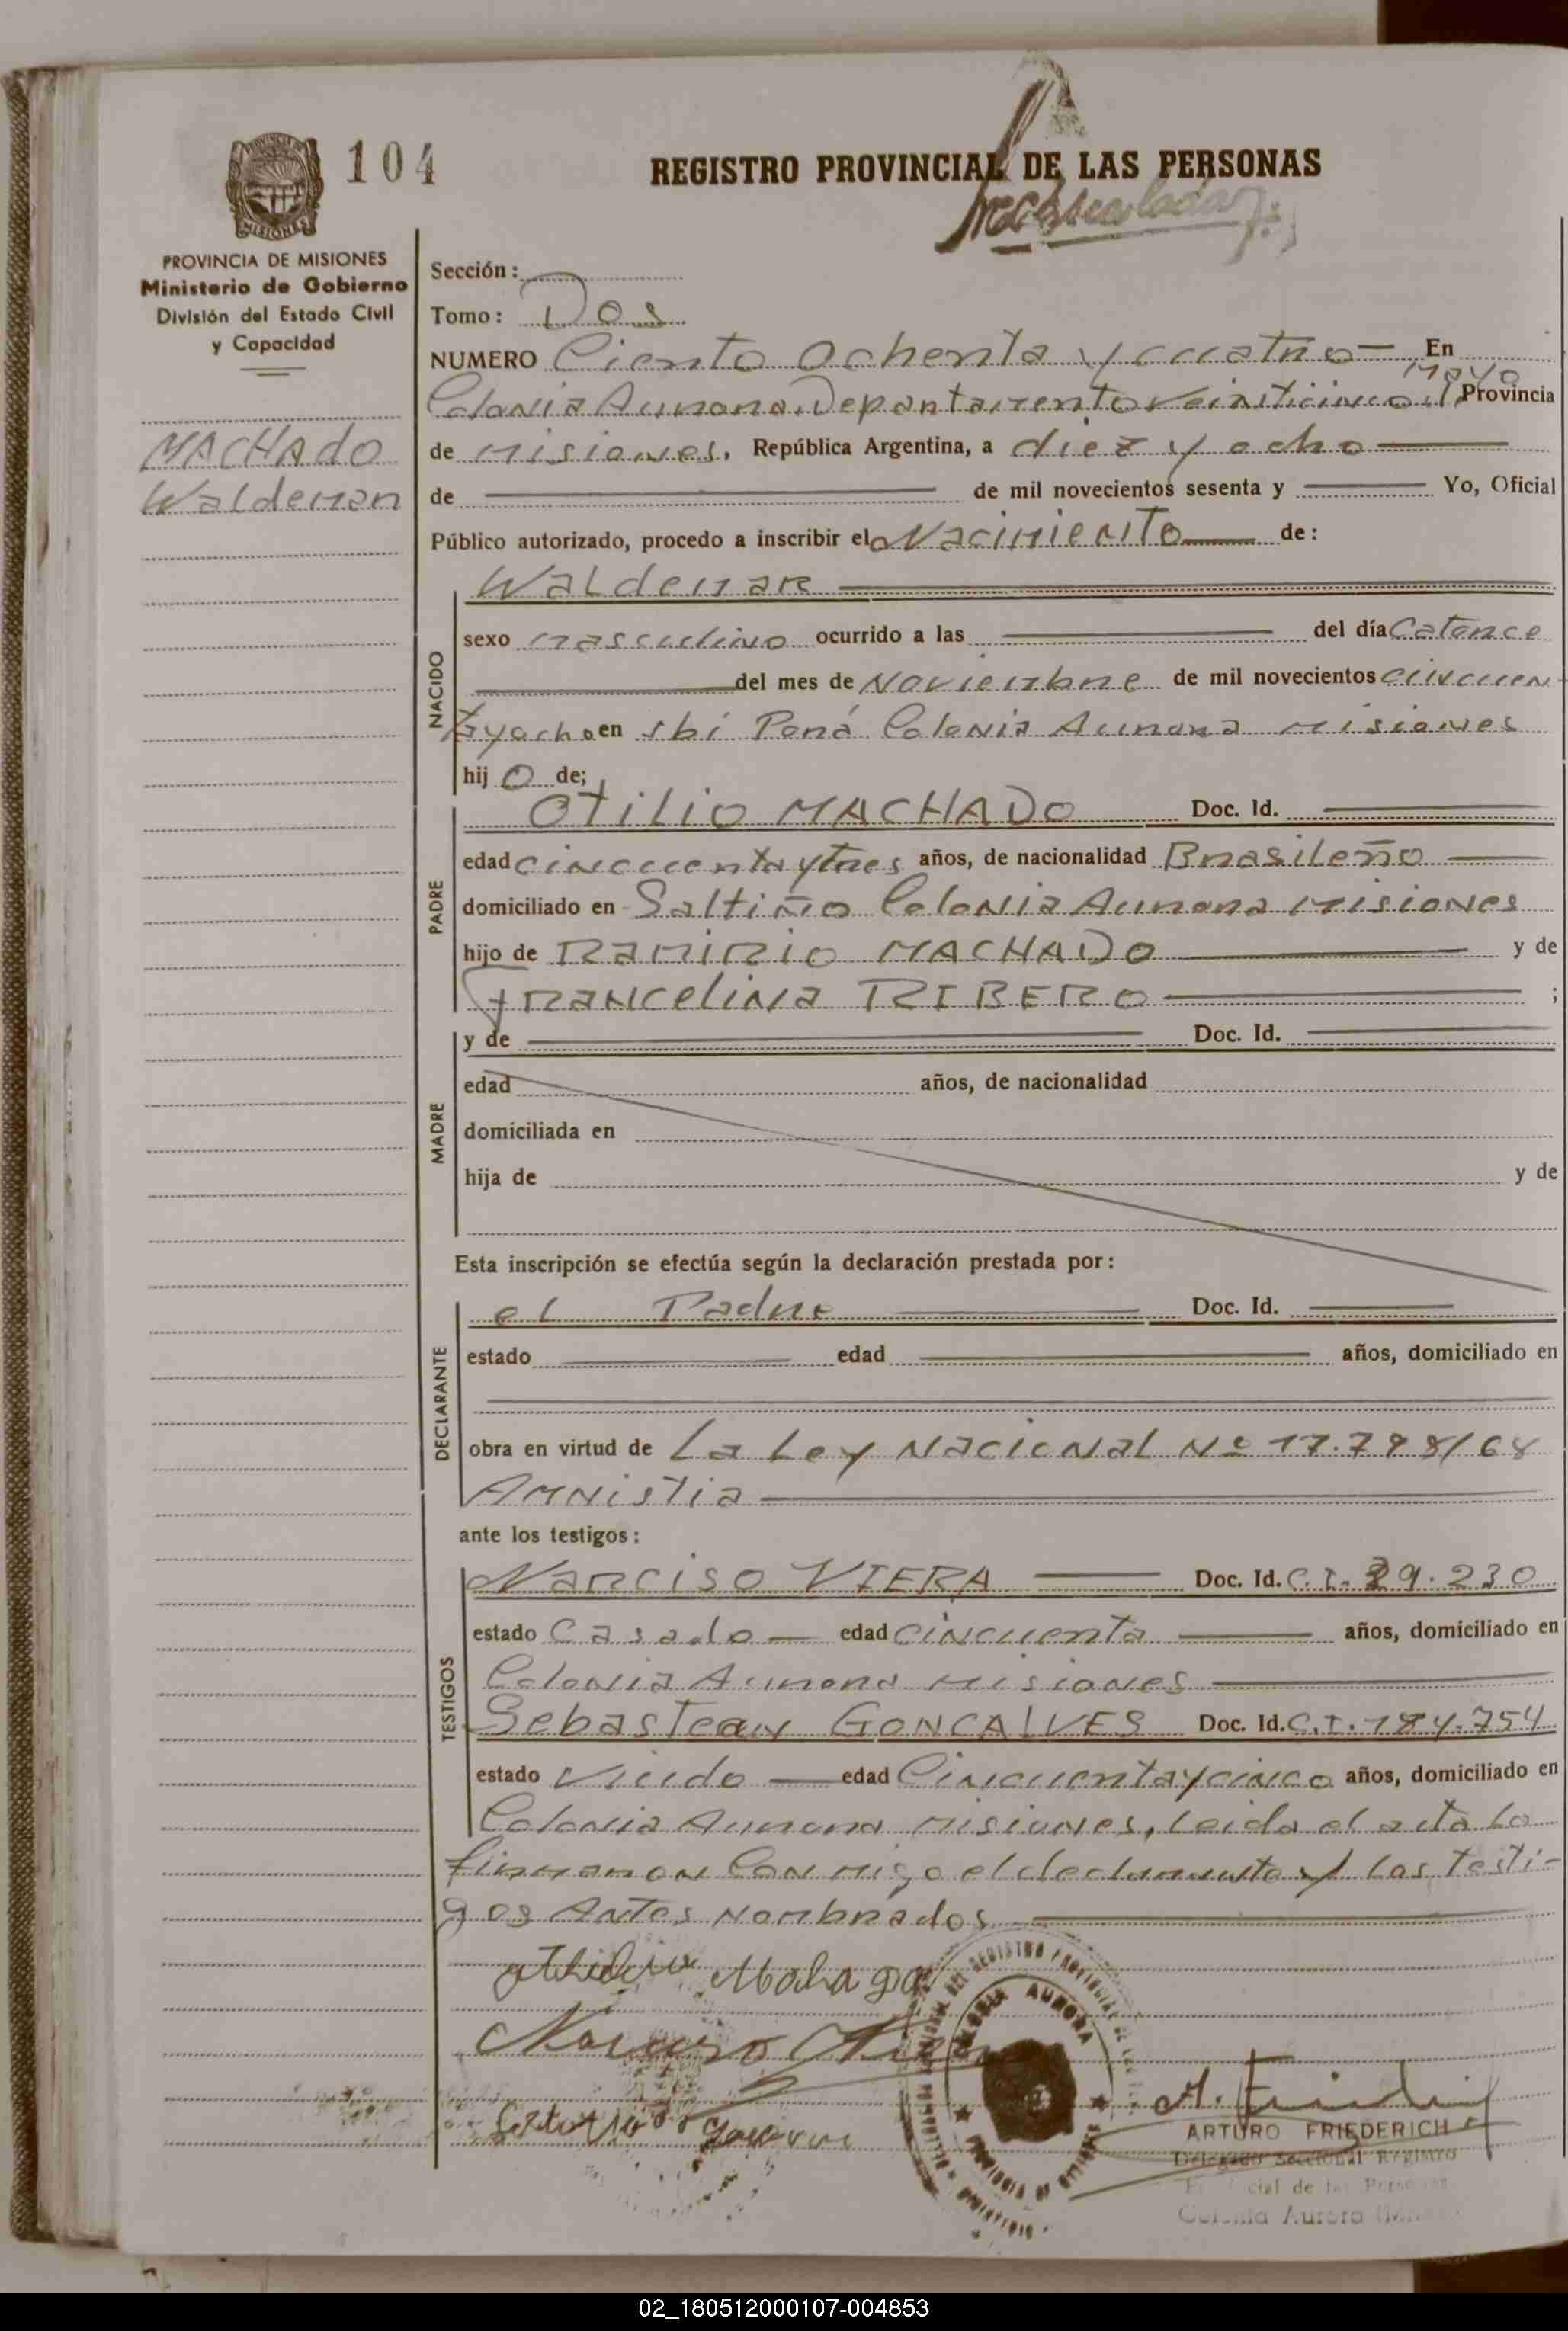 104
REGISTRO PROVINCIAL DE LAS PERSONAS
MISIONES
PROVINCIA DE MISIONES
Ministerio de Gobierno
División del Estado Civil
y Capacidad
MACHAdo
Waldemar
Sección:
Tomo: Dos
NUMERO Ciento Ochenta y cuatro En
Colonia Aurora. Departamento Veinticinco d/ Mayo Provincia
de Misiones. República Argentina, a diez y ocho
de de mil novecientos sesenta y Yo, Oficial
Público autorizado, procedo a inscribir el Nacimiento de:
NACIDO
Waldemar
sexo masculino ocurrido a las del día Catorce
del mes de Noviembre de mil novecientos cincuen
ta y ocho en Ibi Porá Colonia Aurora Misiones
hij o de;
PADRE
Otilio MACHADO Doc. Id.
edad cincuenta y tres años, de nacionalidad Brasileño
domiciliado en Saltiño Colonia Aurora Misiones
hijo de Ramirio MACHADO y de
Francelina RIBERO ;
MADRE
y de Doc. Id.
edad años, de nacionalidad
domiciliada en
hija de y de
Esta inscripción se efectúa según la declaración prestada por:
DECLARANTE
el Padre Doc. Id.
estado edad años, domiciliado en
obra en virtud de La Ley Nacional Nº 17.798/68
Amnistia
ante los testigos:
TESTIGOS
Narciso VIERA Doc. Id. C.I. 39.230
estado Casado edad cincuenta años, domiciliado en
Colonia Aurora Misiones
Sebastean GONCALVES Doc. Id. C.I. 184.754
estado Viudo edad Cincuenta y cinco años, domiciliado en
Colonia Aurora Misiones, leida el acta lo
firmaron Conmigo el declarante y los testi-
gos Antes Nombrados
COLONIA AURORA
PROVINCIA DE MISIONES
A. Friederich
ARTURO FRIEDERICH
Delegado Seccional Registro
cial de las Personas
Colonia Aurora
02_180512000107-004853